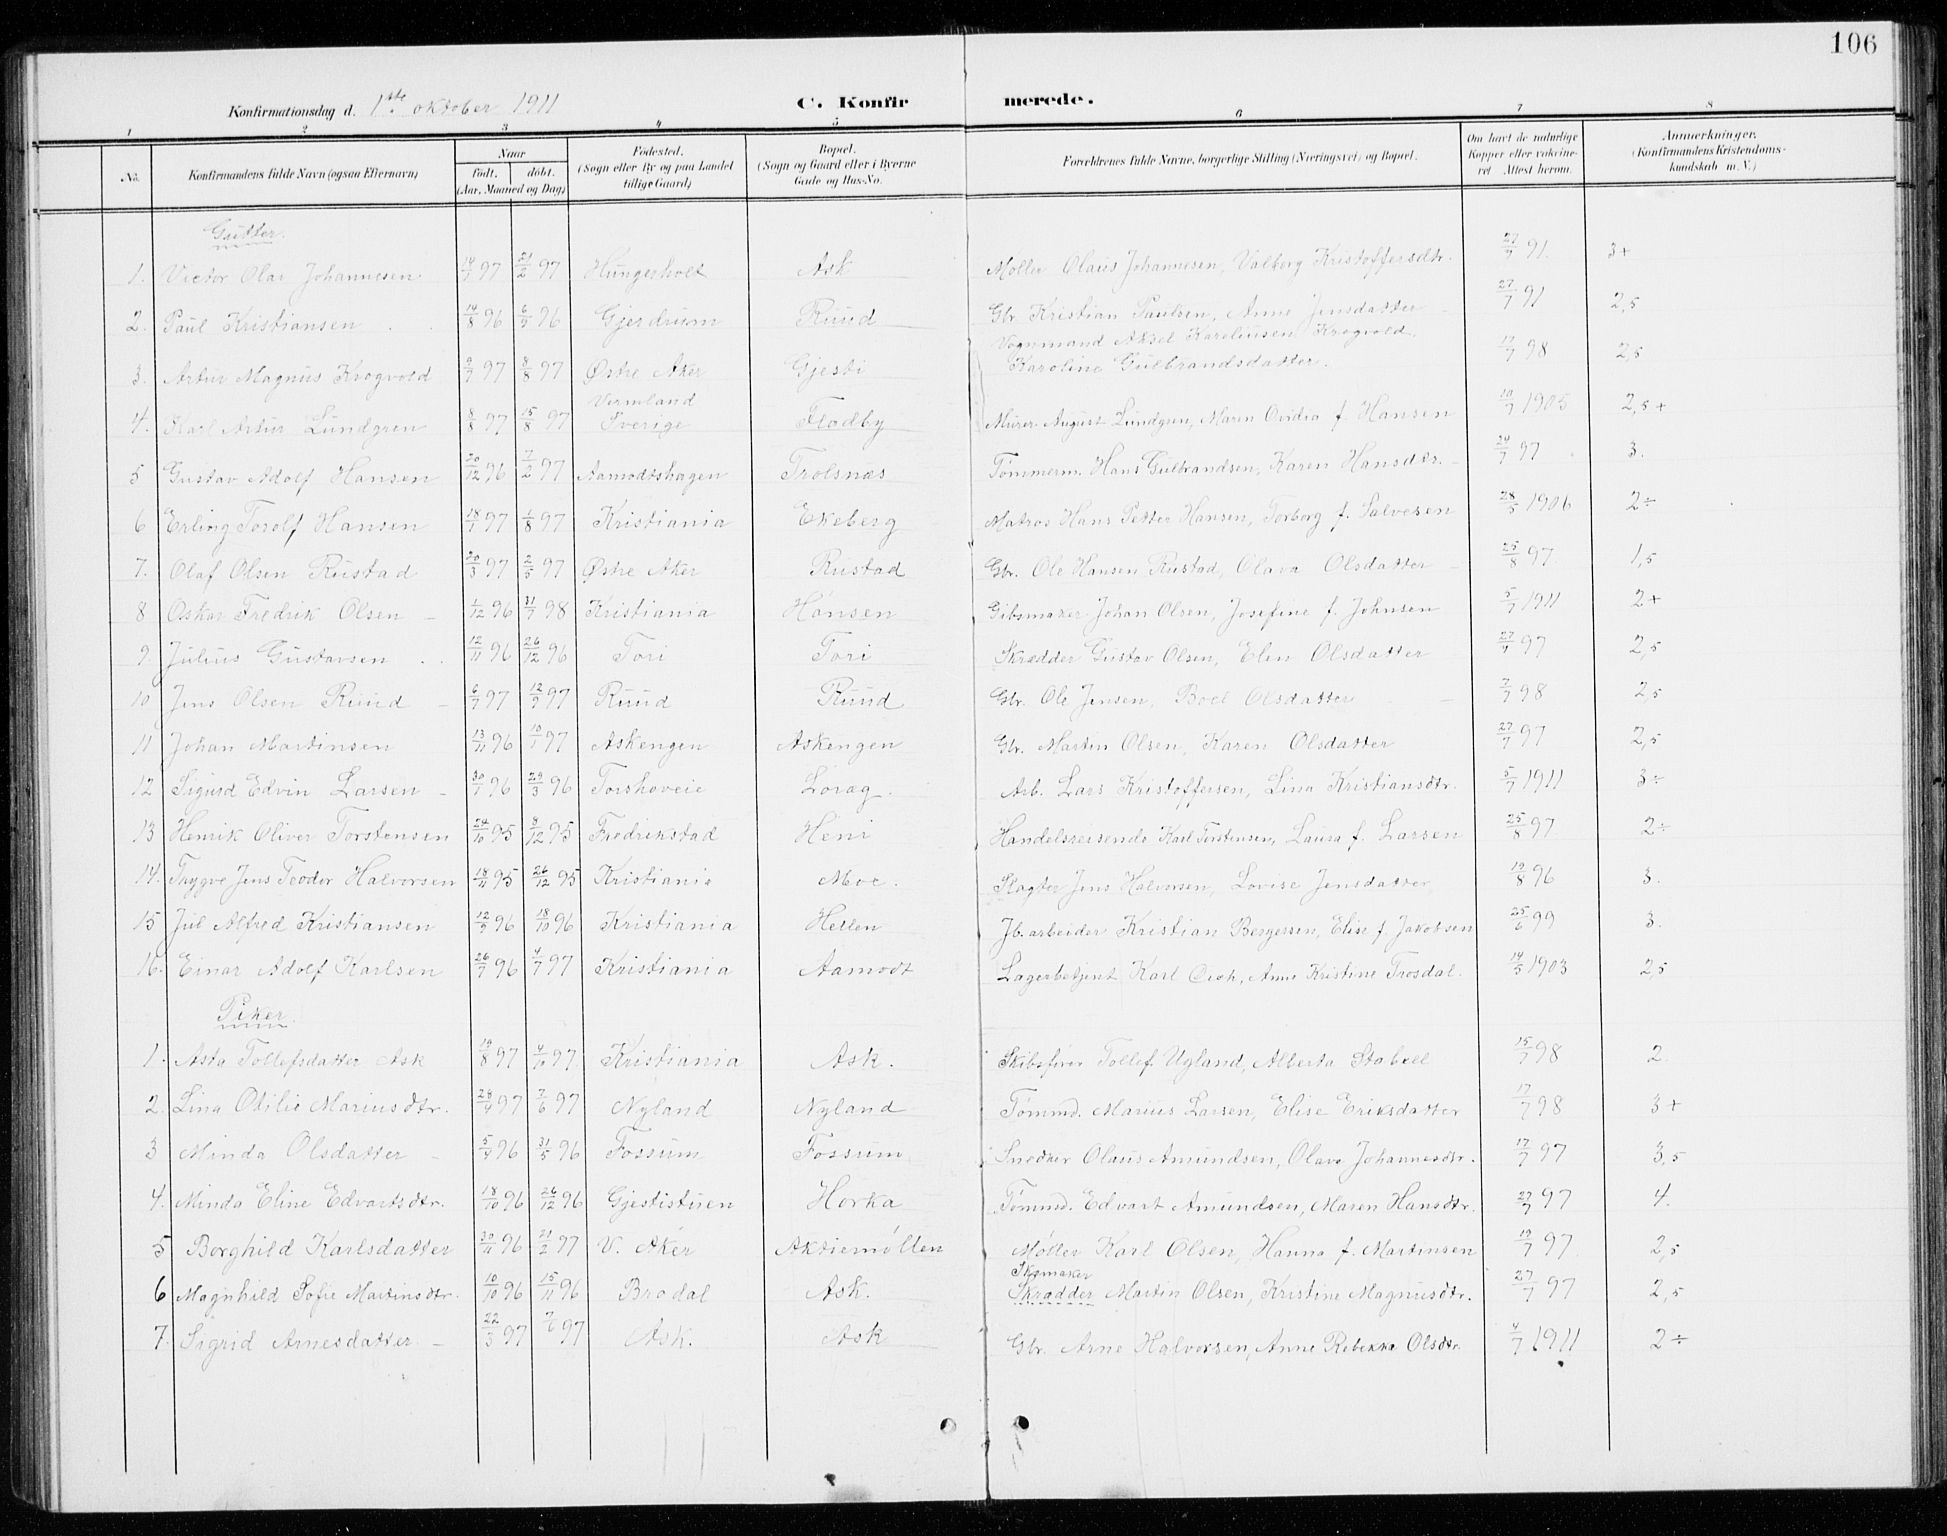 106
Konfirmationsdag d. 1ste oktober 1911 C. Konfirmerede.
1 2 3 4 5 6 7 8
No. Konfirmandens fulde Navn (ogsaa Efternavn) Naar født. døbt. (Aar, Maaned og Dag) Fødested. (Sogn eller By og paa Landet tillige Gaard) Bopæl. (Sogn og Gaard eller i Byerne Gade og Hus-No. Forældrenes fulde Navne, borgerlige Stilling (Næringsvei) og Bopæl. Om havt de naturlige Kopper eller vakcineret Attest herom. Anmærkninger. (Konfirmandens Kristendomskundskab m. V.)
Gutter.
1. Victor Olar Johannesen 97 21/2 97 Hungerholt Ask Møller Olaus Johannesen, Valborg Kristoffersdtr. 91. 3+
2. Paul Kristiansen 14/8 96 6/9 96 Gjerdrum Ruud Gbr. Kristian Paulsen, Anne Jensdatter 27/7 91 2,5
3. Artur Magnus Krogvold 97 8/8 97 Østre Aker Gjesti Vognmand Aksel Kareliusen Krogvold, Karoline Gulbrandsdatter. 98 2,5
4. Karl Artur Lundgren 8/8 97 15/8 97 Vermland Sverige Flodby Murer August Lundgren, Maren Ovidia f. Hansen 10/7 1905 2,5+
5 Gustav Adolf Hansen 20/12 96 7/2 97 Aamodtshagen Trolsnæs Tømmerm. Hans Gulbrandsen, Karen Hansdtr. 24/7 97 3.
6 Erling Torolf Hansen 97 1/8 97 Kristiania Ekeberg Matros Hans Petter Hansen, Torborg f. Salvesen 28/5 1906 2÷
7. Olaf Olsen Rustad 20/3 97 2/5 97 Østre Aker Rustad Gbr. Ole Hansen Rustad, Olava Olsdatter 25/8 97 1,5
8 Oskar Fredrik Olsen 1/12 96 31/7 98 Kristiania Hønsen Gibsmaker Johan Olsen, Josefine f. Johnsen 5/7 1911 2+
9. Julius Gustavsen 12/11 96 26/12 96 Tori Tori Skrædder Gustav Olsen, Elen Olsdatter 27/7 97 2,5
10 Jens Olsen Ruud 6/7 97 12/9 97 Ruud Ruud Gbr. Ole Jensen, Boel Olsdatter 7/7 98 2,5
11 Johan Martinsen 13/11 96 10/1 97 Askengen Askengen Gbr. Martin Olsen, Karen Olsdatter 27/7 97 2,5
12 Sigurd Edvin Larsen 30/1 96 29/3 96 Torshoveie Løvag. Arb. Lars Kristoffersen, Lina Kristiansdtr. 5/7 1911 3÷
13 Henrik Oliver Torstensen 24/10 95 8/12 95 Fredrikstad Heni Handelsreisende Karl Torstensen, Laura f. Larsen 25/8 97 2÷
14. Trygve Jens Teodor Halvorsen 18/11 95 26/12 95 Kristiania Moe. Slagter Jens Halvorsen, Lovise Jensdatter 19/8 96 3.
15 Jul Alfred Kristiansen 12/9 96 18/10 96 Kristiania Hellen Jb.arbeider Kristian Bergersen, Elise f. Jakobsen 25/6 99 3.
16. Einar Adolf Karlsen 26/7 96 4/7 97 Kristiania Aamodt Lagerbetjent Karl, Anne Kristine Trosdal. 14/5 1903 2,5
Piker.
1. Asta Tollefsdatter Ask 19/8 97 97 Kristiania Ask. Skibsfører Tollef Ugland, Alberta Stabell 15/7 98 2.
2. Lina Otilie Mariusdtr. 28/4 97 7/6 97 Nyland Nyland Tømmd. Marius Larsen, Elise Eriksdatter 17/7 98 3+
3 Minda Olsdatter 5/4 96 31/5 96 Fossum Fossum Snedker Olaus Amundsen, Olava Johannesdtr. 17/7 97 3,5
4. Minda Eline Edvartsdtr. 18/10 96 26/12 96 Gjestistuen Horka Tømmd. Edvart Amundsen, Maren Hansdtr. 27/7 97 4.
5 Borghild Karlsdatter 30/11 96 21/2 97 V. Aker Aktiemøllen Møller Karl Olsen, Hanna f. Martinsen 19/7 97 2,5
6 Magnhild Sofie Martinsdtr. 10/10 96 15/11 96 Brodal Ask. Skomaker Skrædder Martin Olsen, Kristine Magnusdtr. 27/7 97 2,5
7. Sigrid Arnesdatter 22/3 97 7/6 97 Ask. Ask Gbr. Arne Halvorsen, Anne Rebekka Olsdtr. 4/7 1911 2÷